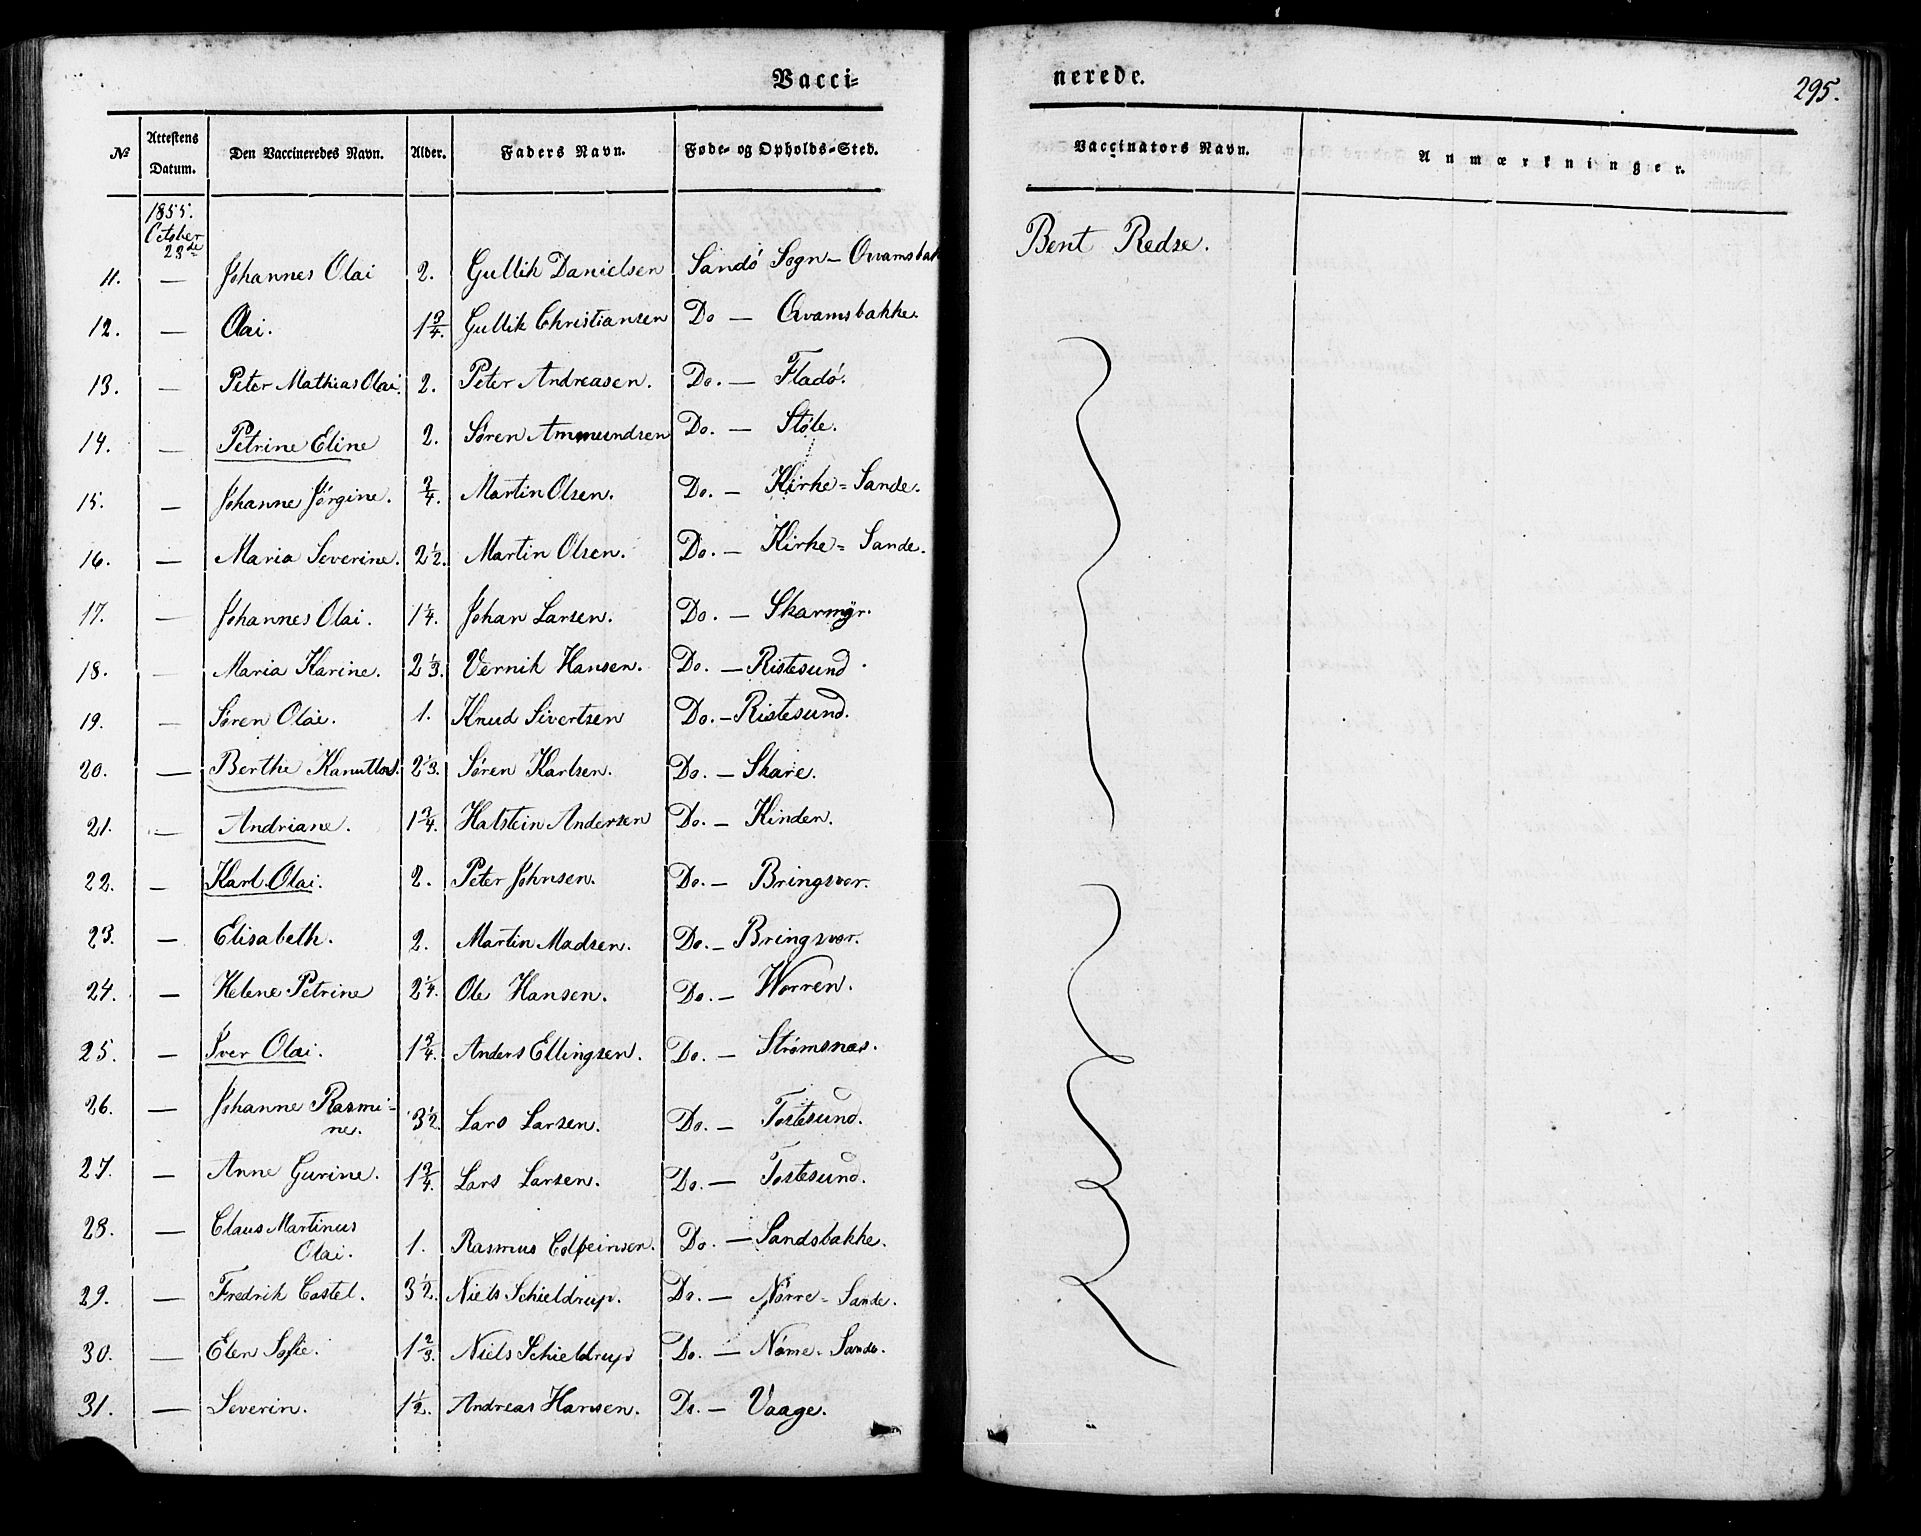 Vacci-
nerede.
295.
№ Attestens Datum. Den Vaccineredes Navn. Alder. Faders Navn. Føde- og Opholds-Sted. Vaccinators Navn. Anmærkninger.
1855.
October
28de
11. — Johannes Olai 2. Gullik Danielsen Sandö Sogn - Qvamsbak Bent Redse.
12. — Olai. 1 3/4. Gullik Christiansen Do — Qvamsbakke.
13. — Peter Mathias Olai. 2. Peter Andreasen. Do. — Fladö.
14. — Petrine Eline 2. Søren Ammundsen Do. — Støle.
15. — Johanne Jörgine. 3/4. Martin Olsen. Do. — Kirke-Sande.
16. — Maria Severine. 2 1/2. Martin Olsen. Do. — Kirke-Sande.
17. — Johannes Olai. 1 1/4. Johan Larsen. Do. — Skarmyr.
18. — Maria Karine. 2 1/3. Vernik Hansen. Do. — Ristesund.
19. — Søren Olai. 1. Knud Sivertsen Do. — Ristesund.
20. — Berthe 2 1/3. Søren Karlsen. Do. — Skare.
21. — Andriane. 1 3/4. Halstein Andersen Do. — Kinden.
22. — Karl Olai. 2. Peter Johnsen. Do. — Bringsvor.
23. — Elisabeth. 2. Martin Madsen. Do. — Bringsvor.
24. — Helene Petrine 2 1/4. Ole Hansen. Do. — Worren.
25. — Iver Olai. 1 3/4. Anders Ellingsen. Do. — Strømsnæs.
26. — Johanne Rasmi-
ne. 3 1/2. Lars Larsen. Do. — Tostesund.
27. — Anne Gurine. 1 3/4. Lars Larsen. Do. — Tostesund.
28. — Claus Martinus
Olai. 1. Rasmus Do. — Sandsbakke.
29. — Fredrik Castel. 3 1/2. Niels Schieldrup. Do. — Nörre-Sande.
30. — Elen Sofie. 1 2/3. Niels Schieldrup Do. — Nørre-Sande.
31. — Severin. 1 1/2. Andreas Hansen. Do. — Vaage.